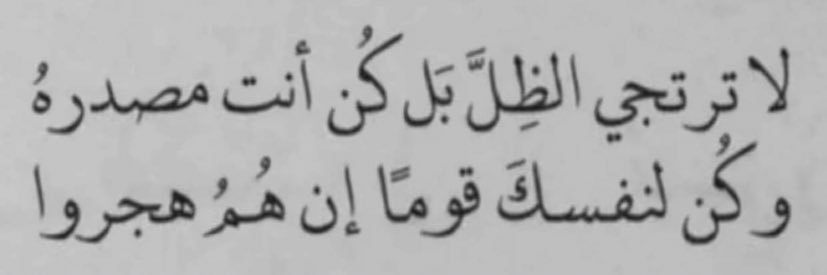 لا ترتجي الظِلَّ بَل كُن أنت مصدرهُ
وكُن لنفسكَ قومًا إن هُمُ هجروا